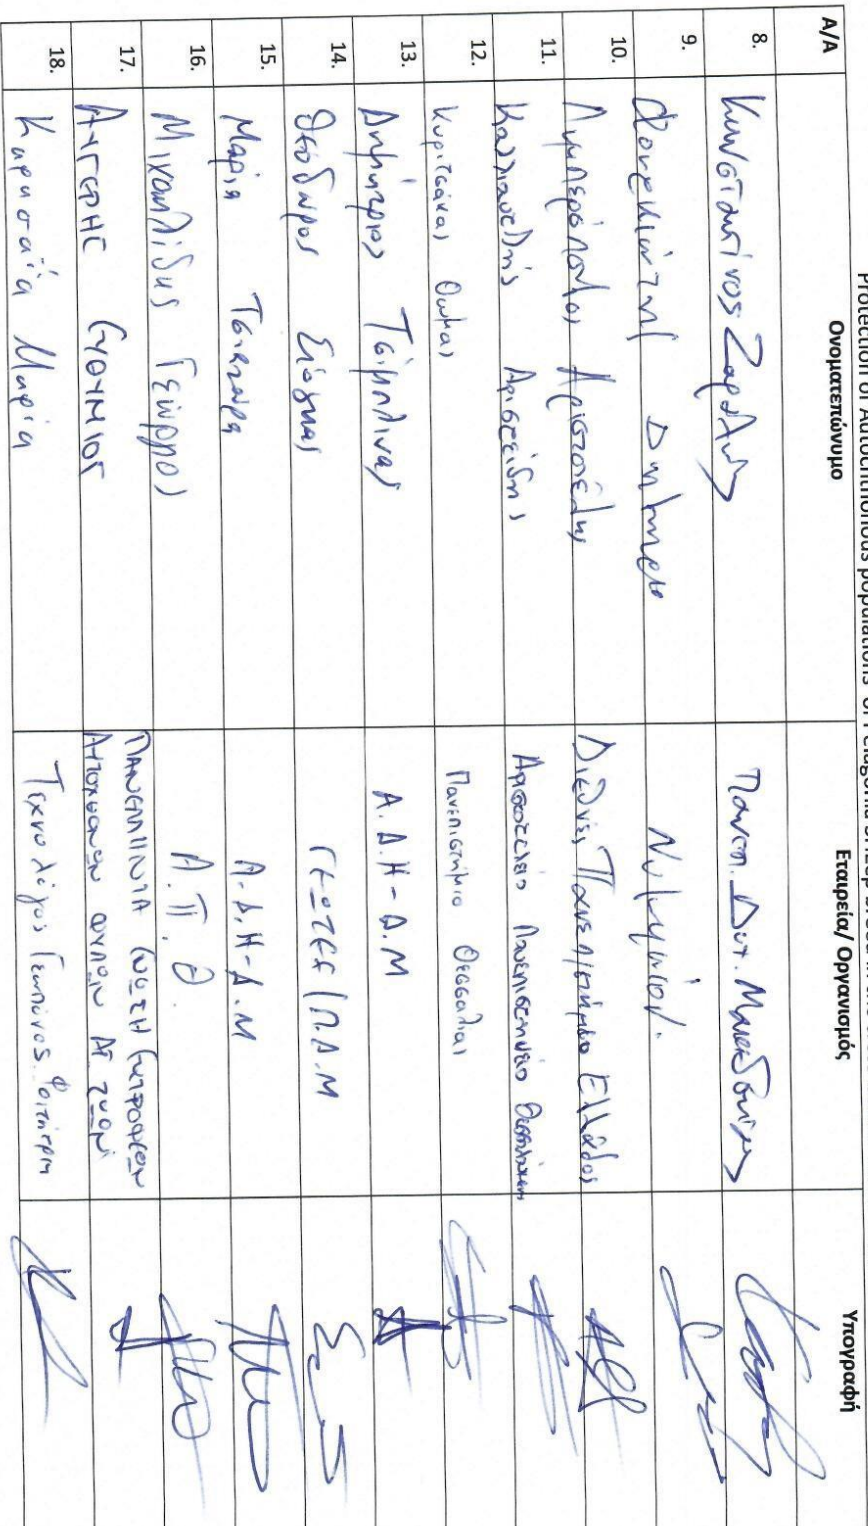 Protection of Autochthonous populations of Pelagonia sheep breed in the cross
Α/Α Ονοματεπώνυμο Εταιρεία/ Οργανισμός Υπογραφή
8. Κωνσταντίνος Ζαραλής Πανεπ. Δυτ. Μακεδονίας
9. Δήμητρα
10. Λυμπερόπουλος Αριστοτέλης Διεθνές Πανεπιστήμιο Ελλάδος
11. Αριστείδης Αριστοτέλειο Πανεπιστήμιο Θεσσαλονίκης
12. Κυριτσάκας Θωμάς Πανεπιστήμιο Θεσσαλίας
13. Δημήτριος Τσίμπλινας Α.Δ.Η-Δ.Μ
14. Θεόδωρος Σιόγκας ΓΕΩΤΕΕ/Π.Δ.Μ
15. Μαρία Α.Δ.Η-Δ.Μ
16. Μιχαηλίδης Γεώργιος Α.Π.Θ.
17. ΑΥΓΕΡΗΣ ΕΥΘΥΜΙΟΣ ΠΑΝΕΛΛΗΝΙΑ ΕΝΩΣΗ ΕΚΤΡΟΦΕΩΝ
ΑΥΤΟΧΘΟΝΩΝ ΦΥΛΩΝ ΑΓ. ΖΩΩΝ
18. Μαρία Τεχνολόγος Γεωπόνος. Φοιτήτρια